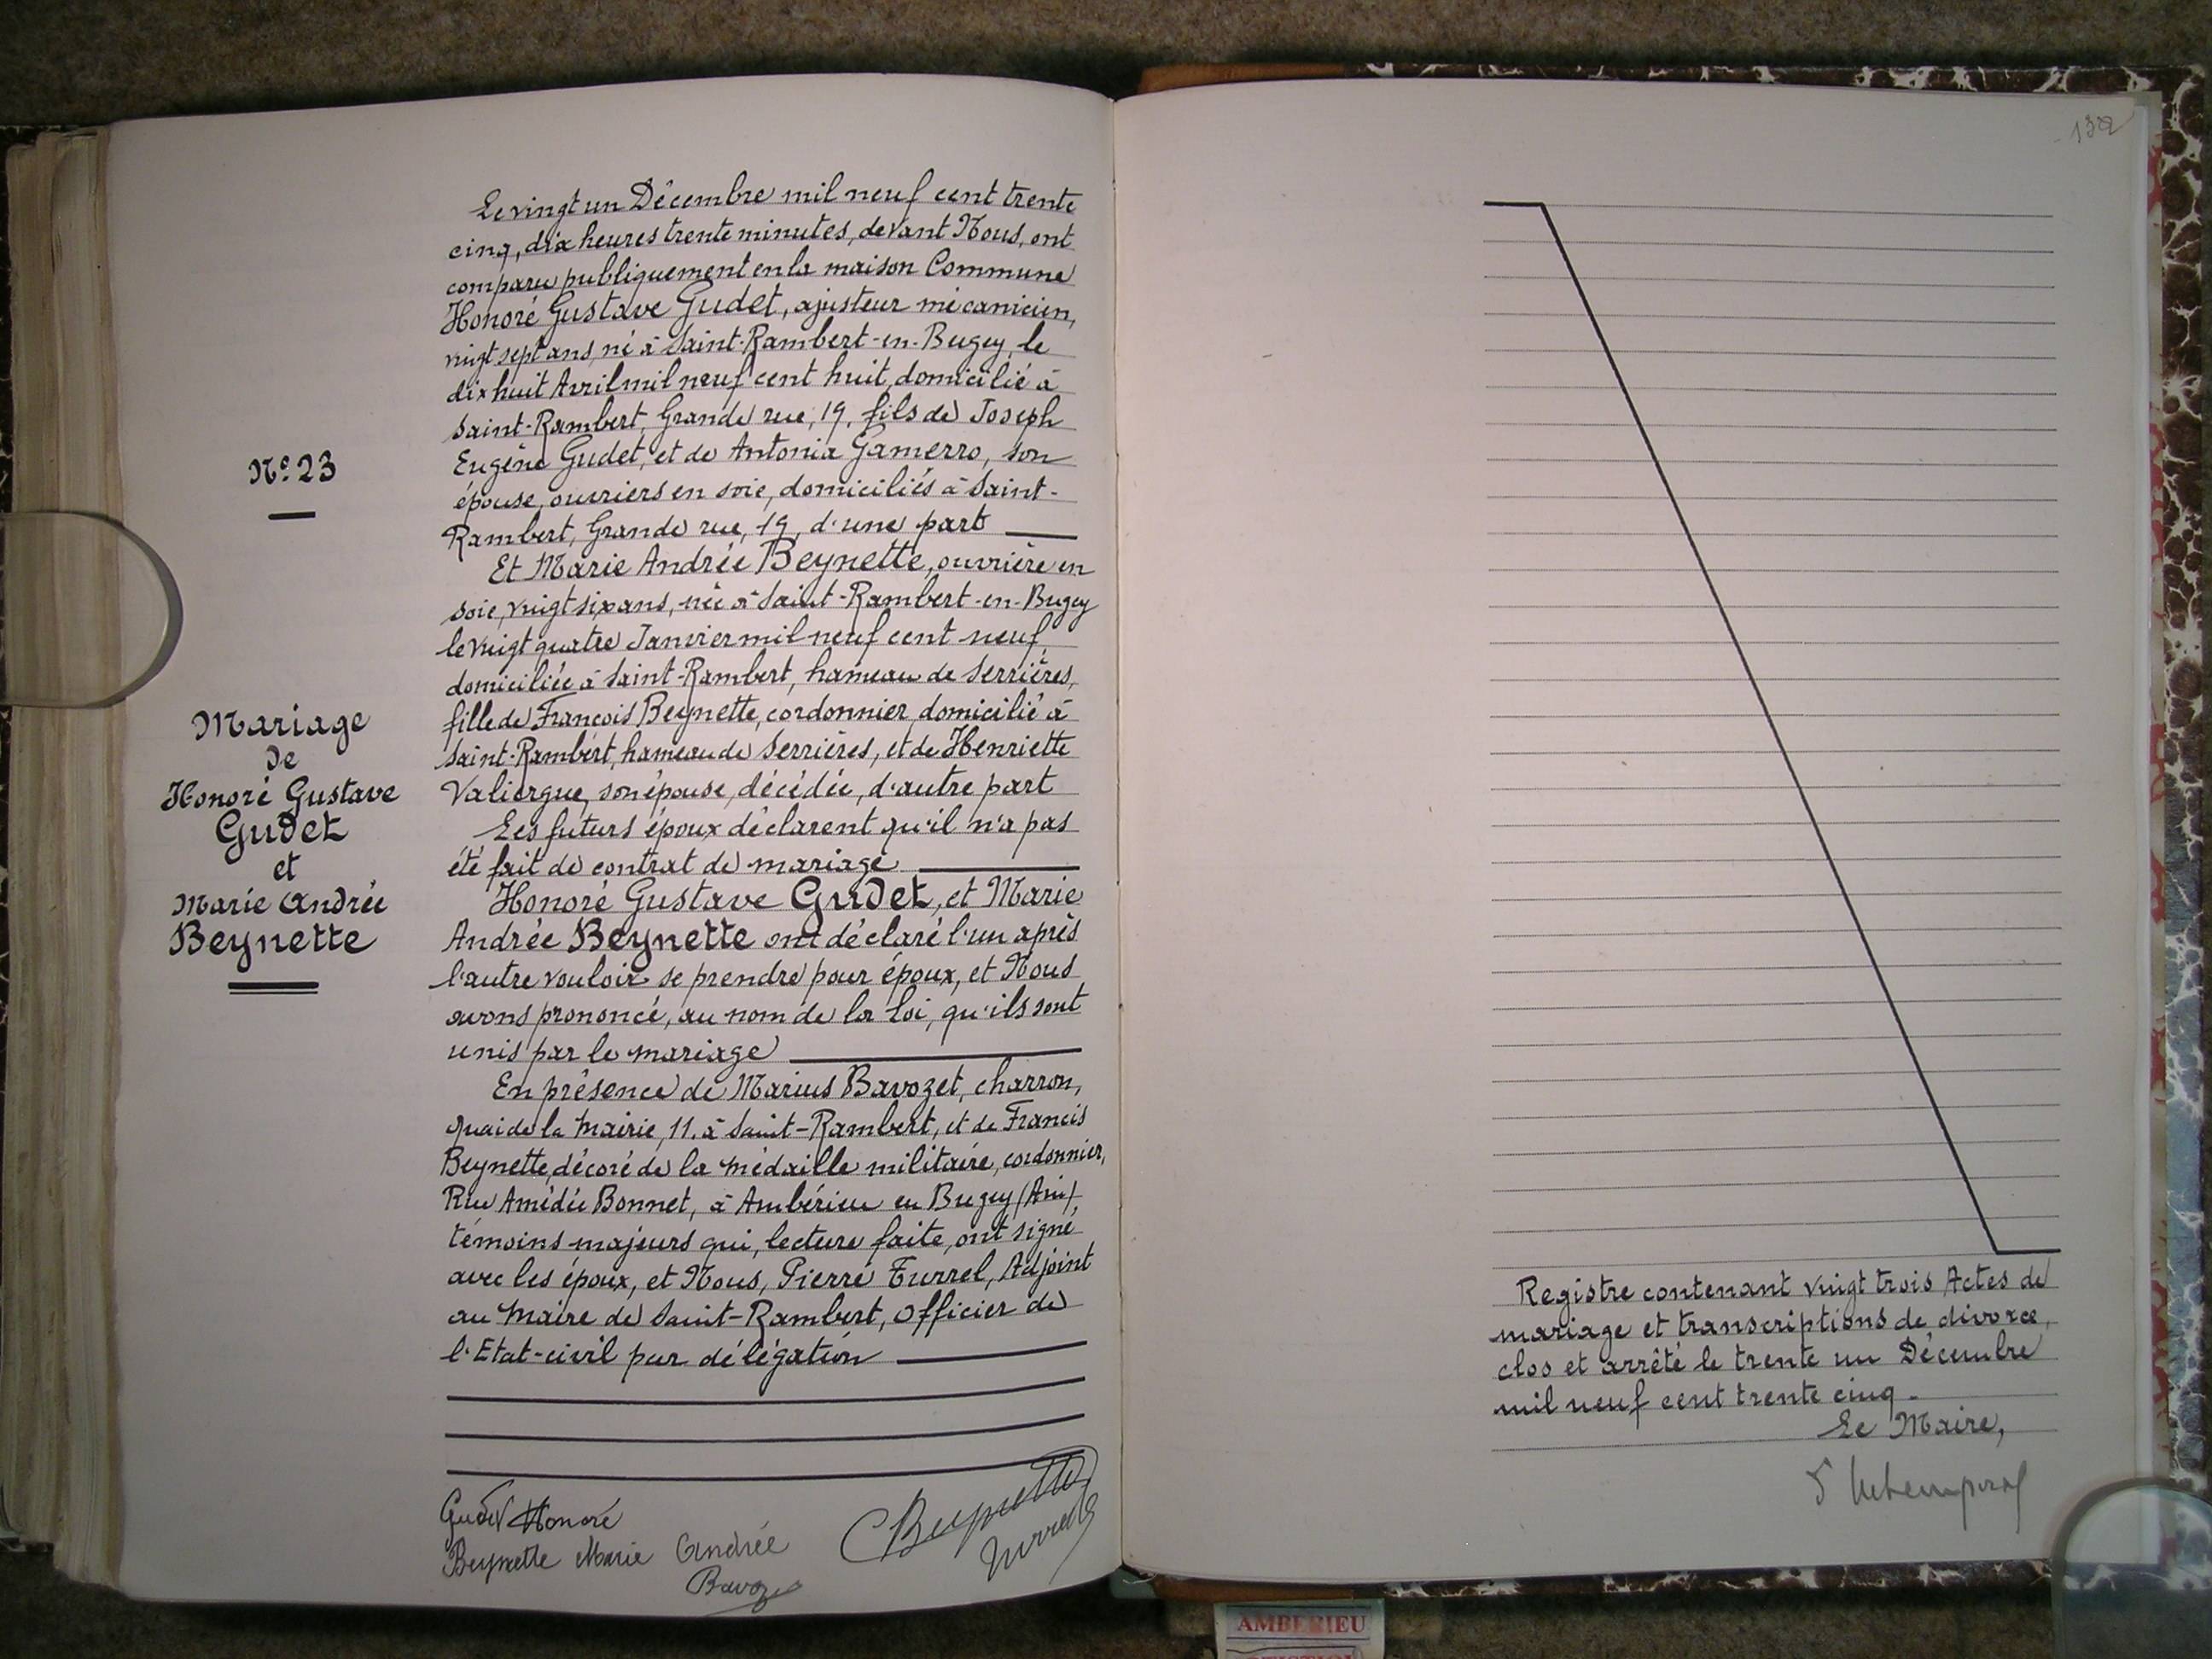 Nº 23
Mariage
de
Honoré Gustave
Gudet
et
Marie Andrée
Beynette
Le vingt un Décembre mil neuf cent trente
cinq, dix heures trente minutes, devant Nous, ont
comparu publiquement en la maison Commune
Honoré Gustave Gudet, ajusteur mécanicien,
vingt sept ans, né à Saint-Rambert-en-Bugey, le
dix huit Avril mil neuf cent huit, domicilié à
Saint-Rambert, Grande rue, 19, fils de Joseph
Eugène Gudet, et de Antonia Gamerro, son
épouse, ouvriers en soie, domiciliés à Saint-
Rambert, Grande rue, 19, d'une part
Et Marie Andrée Beynette, ouvrière en
soie, vingt six ans, née à Saint-Rambert-en-Bugey
le vingt quatre Janvier mil neuf cent neuf,
domiciliée à Saint-Rambert, hameau de Serrières,
fille de François Beynette, cordonnier, domicilié à
Saint-Rambert, hameau de Serrières, et de Henriette
Valiorgue, son épouse, décédée, d'autre part
Les futurs époux déclarent qu'il n'a pas
été fait de contrat de mariage
Honoré Gustave Gudet, et Marie
Andrée Beynette ont déclaré l'un après
l'autre vouloir se prendre pour époux, et Nous
avons prononcé, au nom de la Loi, qu'ils sont
unis par le mariage
En présence de Marius Bavozet, charron,
quai de la Mairie, 11. à Saint-Rambert, et de Francis
Beynette, décoré de la médaille militaire, cordonnier,
Rue Amédée Bonnet, à Ambérieu en Bugey (Ain)
témoins majeurs qui, lecture faite, ont signé
avec les époux, et Nous, Pierre Turrel, Adjoint
au Maire de Saint-Rambert, Officier de
l'Etat-civil par délégation
Gudet Honoré
Beynette Marie Andrée
Bavozet
Beynette
Turrel
132
Registre contenant vingt trois Actes de
mariage et transcriptions de divorce,
clos et arrêté le trente un Décembre
mil neuf cent trente cinq.
Le Maire,
AMBERIEU